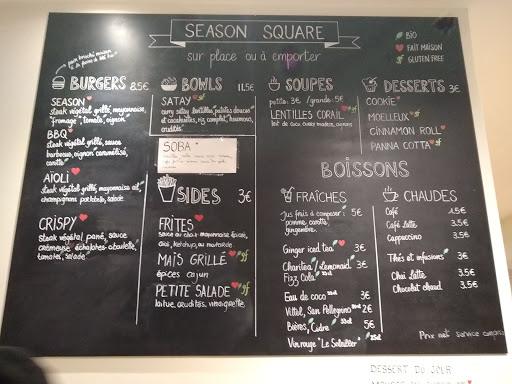 SEASON SQUARE
sur place ou à emporter
BIO
FAIT MAISON
GLUTEN FREE
BURGERS 8.5€
SEASON
steak végétal grillé, mayonnaise,
"fromage", tomate, oignon
BBQ
steak végétal grillé, sauce
barbecue, oignon caramélisé,
carotte
AÏOLI
steak végétal grillé, mayonnaise ail,
champignons portobello, salade
CRISPY
steak végétal pané, sauce
crémeuse échalotes-ciboulette,
tomates, salade
BOWLS 11.5€
SATAY
curry satay lentilles, patates douces
et cacahuètes, riz complet, houmous,
crudités
SOBA
SIDES 3€
FRITES
sauce au choix: mayonnaise épicée,
aïoli, ketchup, ou moutarde
MAÏS GRILLÉ
épices cajun
PETITE SALADE
laitue, crudités, vinaigrette
SOUPES
petite: 3€ / grande: 5€
LENTILLES CORAIL
lait de coco, curry madras,
DESSERTS 3€
COOKIE
MOELLEUX
CINNAMON ROLL
PANNA COTTA
BOISSONS
FRAÎCHES
Jus frais à composer: 5€
pomme, carotte,
gingembre
Ginger iced tea 3€
Charitea / Lemonaid 3€
Fizz Cola 33cl
Eau de coco 33cl 3€
Vittel, San Pellegrino 50cl 2€
Bières, Cidre 33cl 5€
Vin rouge "Le Solailler" 25cl
CHAUDES
Café 1.5€
Café Latte 3.5€
Cappuccino 3.5€
Thés et infusions 3€
Chai Latte 3.5€
Chocolat chaud 3.5€
Prix net service compris
DESSERT DU JOUR